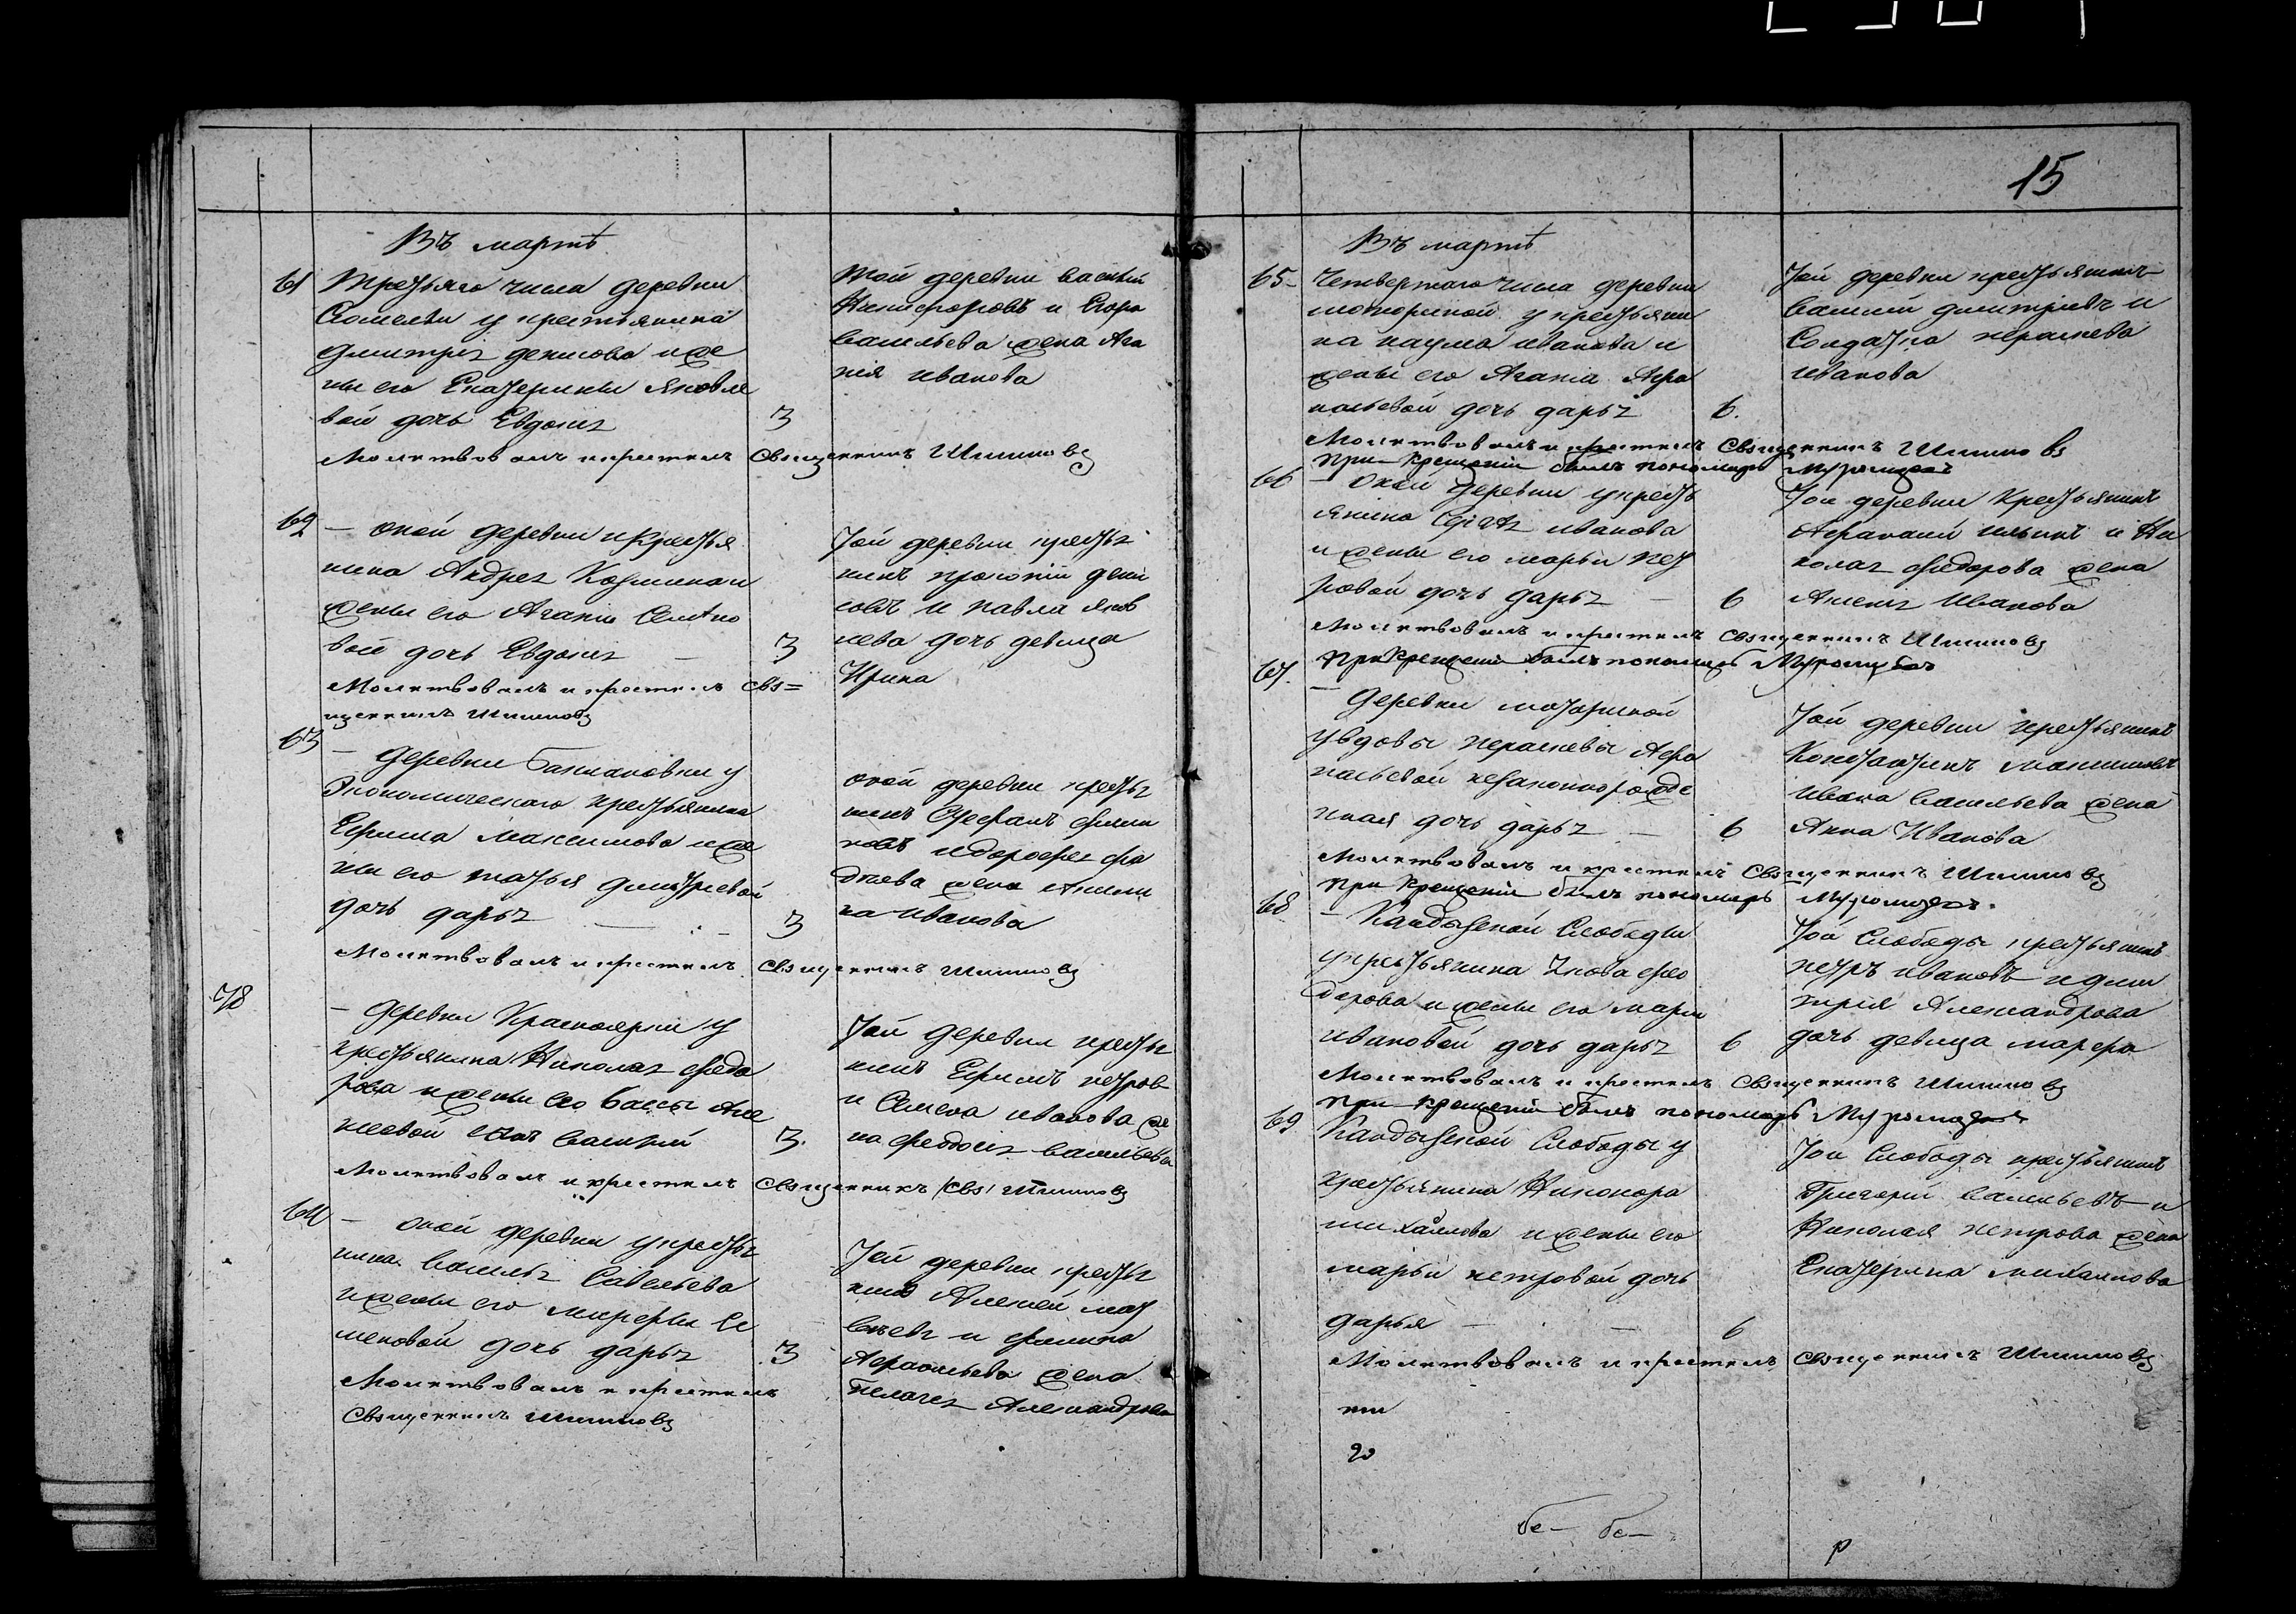 15
Въ мартѣ
61 Третьяго числа деревни
у крестьянина
Дмитрія денисова и же
ны его Екатерины Яковле
вой дочь Евдокія
3
Той деревни василій
Никифоровъ и Егора
васильева жена Ага
пія иванова
Молитвовалъ и крестилъ Священникъ Шишковъ
62 — оной деревни у крестья
нина Андрея Козмина и
жены его Агапіи
вой дочь Евдокія —
3
Той деревни крестья
нинъ прокопій дени
совъ и павла яков
лева дочь девица
Ирина
Молитвовалъ и крестилъ Свя=
щенникъ Шишковъ
63 — деревни у
Экономическаго крестьянина
Ефима Максимова и же
ны его дмитріевой
дочь дарья —
3
оной деревни крестья
нинъ Стефанъ филип
повъ и дорофея
жена
на иванова
Молитвовалъ и крестилъ Священникъ Шишковъ
78
— деревни Красноярки у
крестьянина Николая федо
рова и жены его Але
ксеевой сынъ василій
3.
Той деревни крестья
нинъ Ефимъ петровъ
и Семена иванова же
на феодосія васильева
Молитвовалъ и крестилъ Священникъ (Свя) Шишковъ
64 — оной деревни у крестья
нина василья Савельева
и жены его марфы Се
меновой дочь дарья
3
Той деревни крестья
нинъ Алексей мат
веевъ и филипа
Афанасьева жена
пелагея Александрова
Молитвовалъ и крестилъ
Священникъ Шишковъ
Въ мартѣ
65 Четвертаго числа деревни
у крестьяни
на наума иванова и
жены его Агапіи Афа
насьевой дочь дарья
6.
Той деревни крестьянинъ
василій дмитріевъ и
Солдатка
иванова
Молитвовалъ и крестилъ Священникъ Шишковъ
При Крещеніи былъ пономарь
66 — оной деревни у кресть
янина Сергѣя иванова
и жены его марьи пет
ровой дочь дарья —
6
Той деревни Крестьянинъ
Афанасій ильинъ и Ни
колая федорова жена
Аксенія Иванова
Молитвовалъ и крестилъ Священникъ Шишковъ
При Крещеніи былъ пономарь
67.
— деревни
у вдовы Афа
насьевой незаконнорожде
нная дочь дарья —
6
Той деревни крестьянинъ
Константинъ Максимовъ
ивана васильева жена
Анна Иванова
Молитвовалъ и крестилъ Священникъ Шишковъ
При Крещеніи былъ пономарь
68
— Кандызской Слободы
у крестьянина Якова фео
дорова и жены его марьи
ивановой дочь дарья
6
Той Слободы крестьянинъ
петръ ивановъ и дми
трія Александрова
дочь девица марфа
Молитвовалъ и крестилъ Священникъ Шишковъ
При Крещеніи былъ пономарь
69 Кандызской Слободы у
крестьянина Никонора
михайлова и жены его
марьи петровой дочь
дарья — —
6
Той Слободы крестьянинъ
Григорій васильевъ и
Николая петрова жена
Екатерина михайлова
Молитвовалъ и крестилъ Священникъ Шишковъ
бе— бе—
р